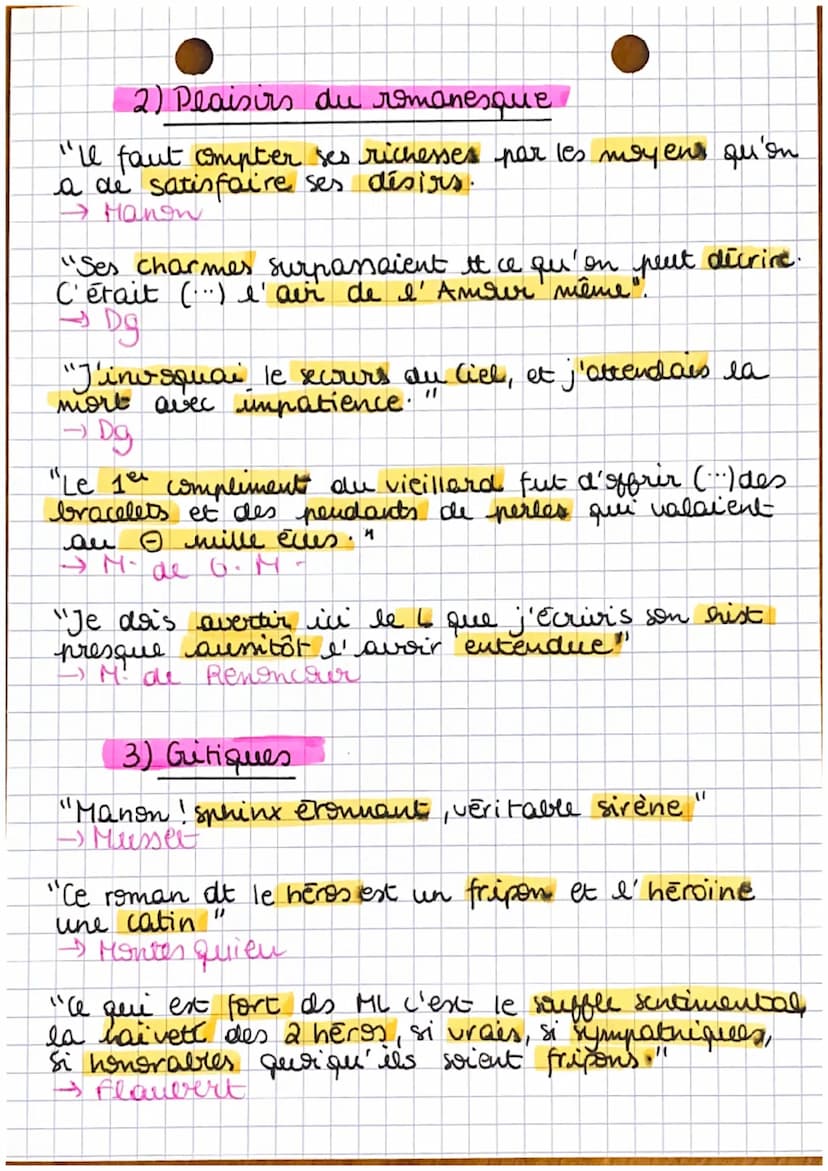 2) Plaisirs du romanesque
"Il faut compter ses richesses par les moyens qu'on
a de satisfaire ses désirs.
→ Manon
"Ses charmes surpassaient tt ce qu'on peut décrire.
C'était (...) l'air de l'Amour même".
→ Dg
"J'invoquai le secours du Ciel, et j'attendais la
mort avec impatience."
→ Dg
"Le 1er compliment du vieillard fut d'offrir (...) des
bracelets et des pendants de perles qui valaient
au ⊖ mille écus."
→ M. de G. M-
"Je dois avertir ici le L que j'écrivis son hist
presque aussitôt l'avoir entendue"
→ M. de Renoncour
3) Critiques
"Manon ! sphinx étonnant, véritable sirène"
→ Musset
"Ce roman dt le héros est un fripon et l'héroine
une catin"
→ Montesquieu
"Ce qui est fort ds ML c'est le souffle sentimental,
la naïveté des 2 héros, si vrais, si sympathiques,
si honorables quoiqu'ils soient fripons."
→ Flaubert